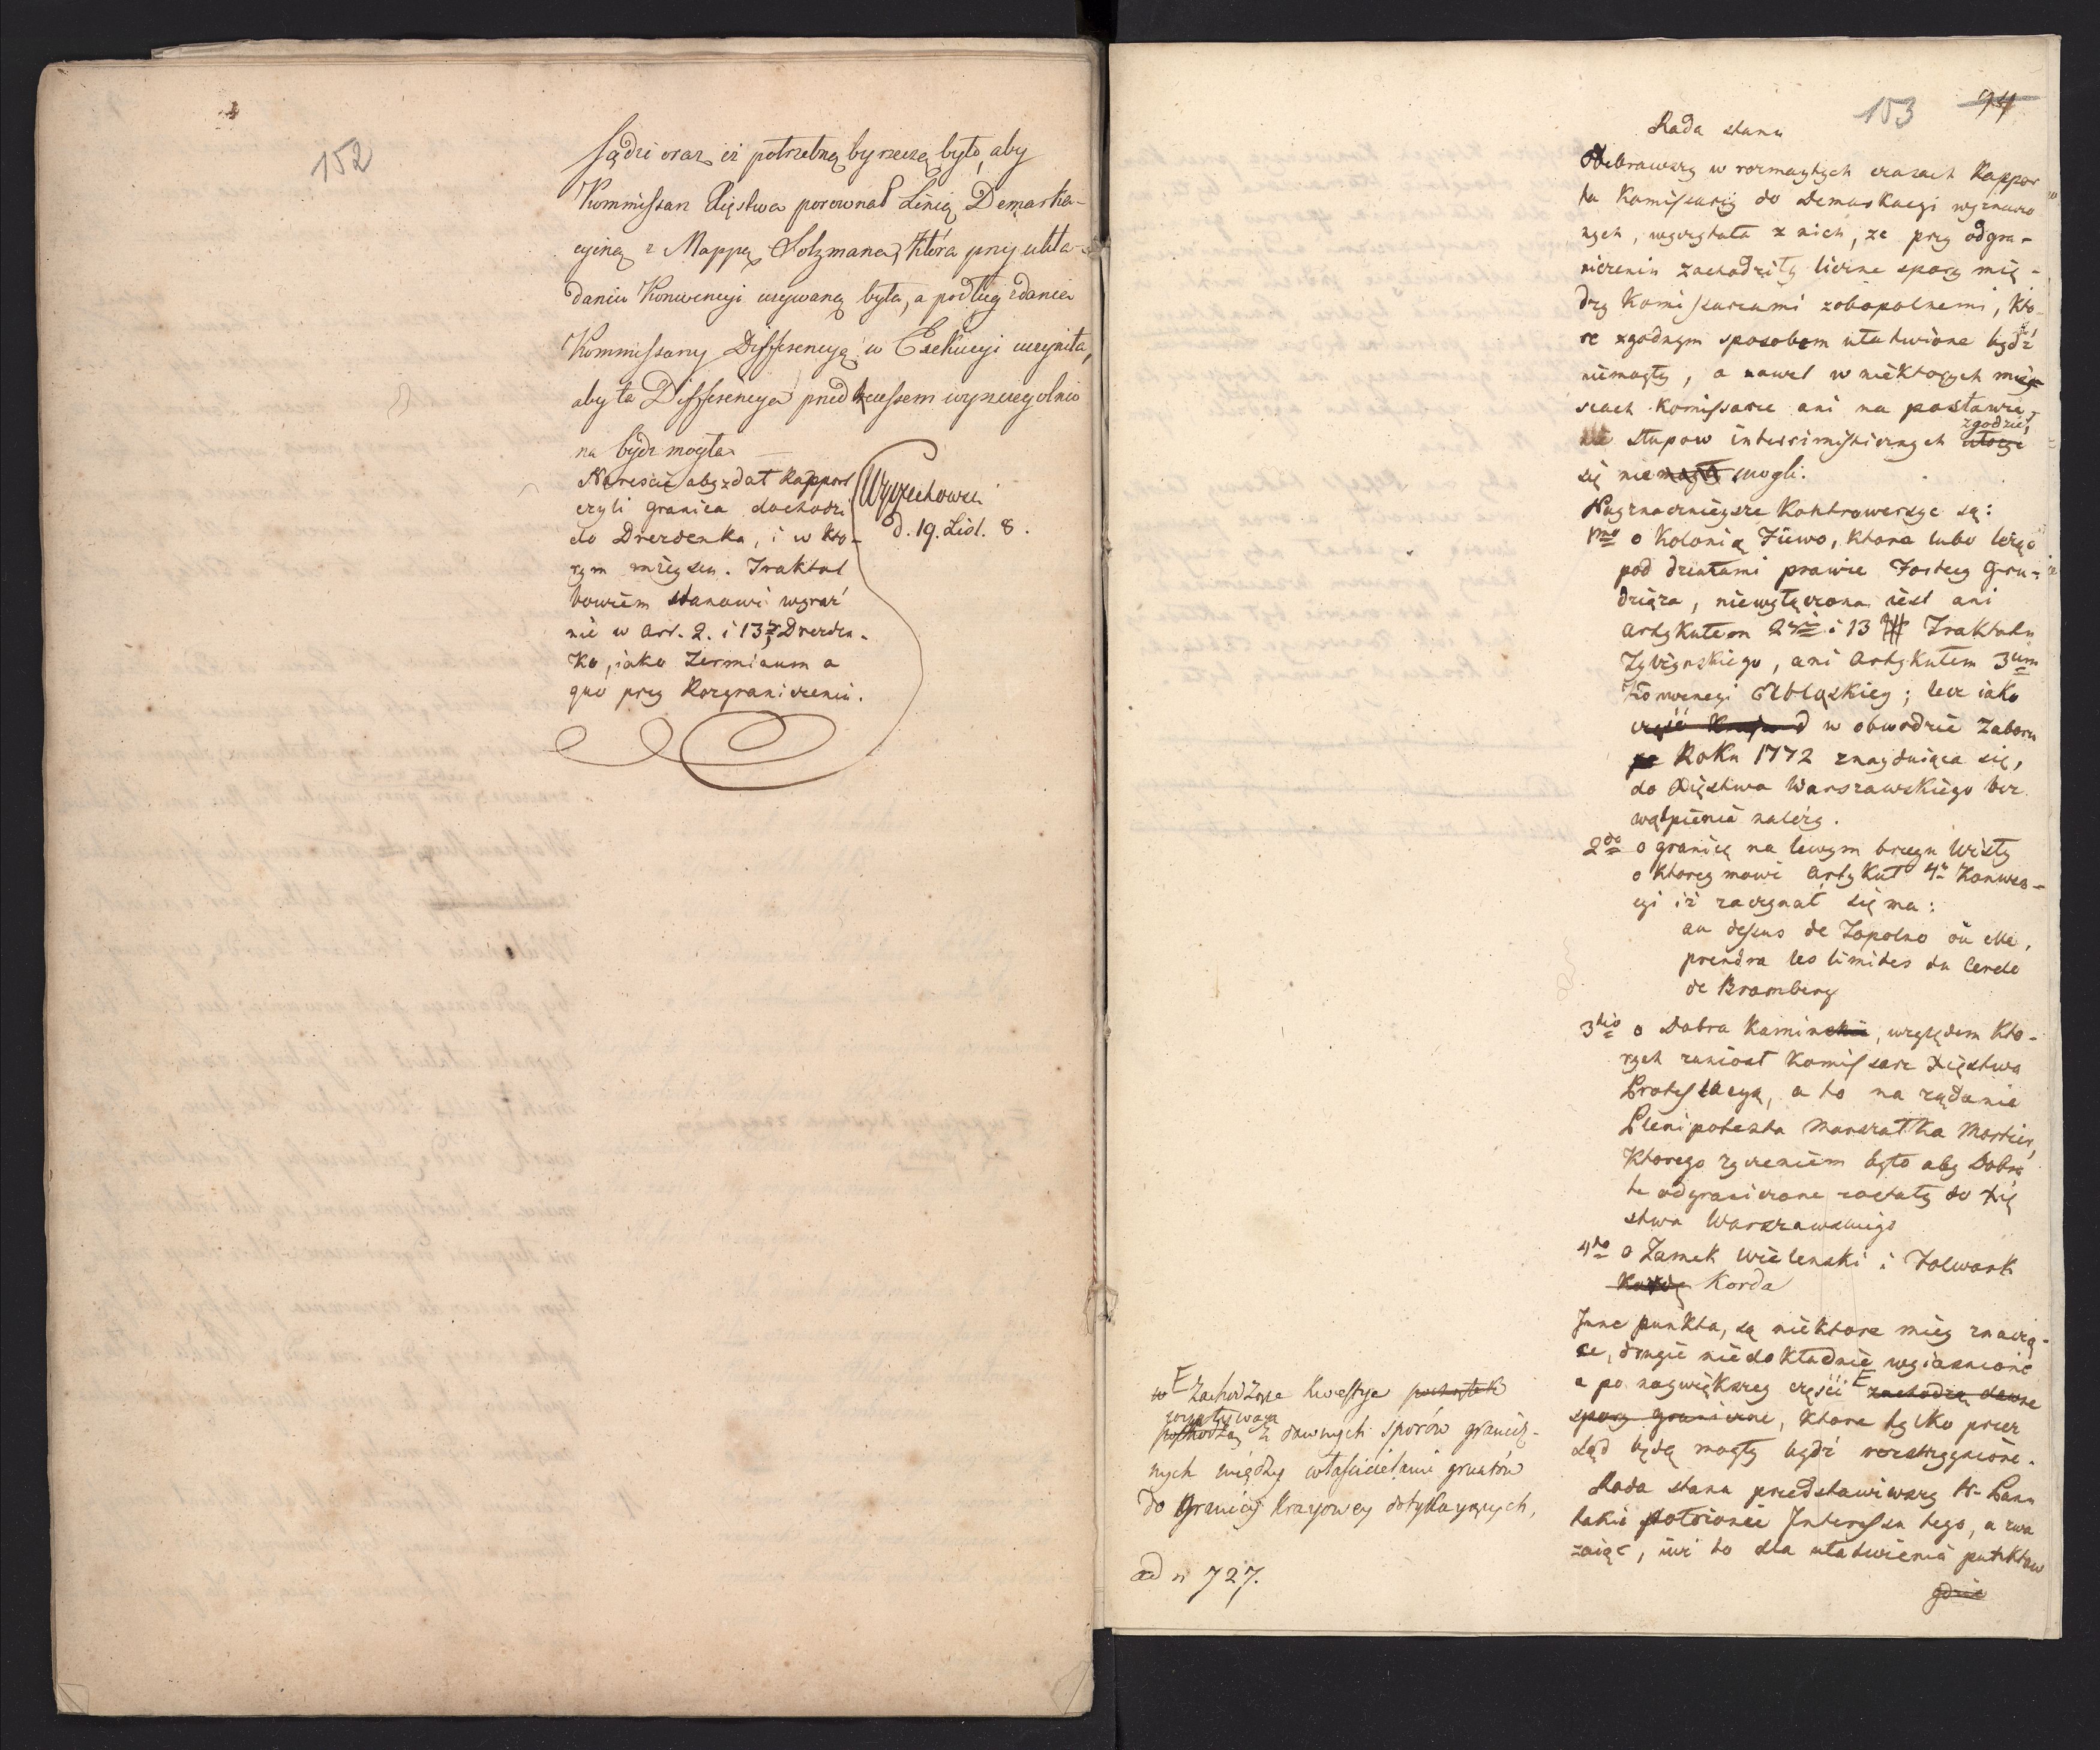 152
Sądzi oraz iż potrzebną by rzeczą było, aby
Kommissarz Xięstwa porownał Linią Demarka-
cyiną z Mappą Solzmana, która przy ukła-
daniu Konwencyi używaną była, a podług zdania
Kommissarzy Differencyą w Exekucyi uczyniła,
aby ta Differencya przed kressem wyszczególnio
na bydź mogła.
Nareście aby zdał Rapport
czyli granica dochodzi
do Drezdenka, i w któ-
rym mieyscu. Traktat
bowiem stanowi wyraź
nie w Art. 2. i 13 Drezden-
ko, iako Terminum a
quo przy Rozgraniczeniu.
d. 19. List. 8.
153
94
Rada stanu
Odebrawszy w rozmaitych czasach Rappor
ta Komissarzy do Demarkacyi wyznaczo
nych, wyczytała z nich, ze przy odgra-
niczeniu zachodziły liczne spory mię-
dzy Komissarzami zobopolnemi, kto-
re zgodnym sposobem ułatwione bydź
niemogły, a nawet w niektorych miey-
scach Komissarze ani na postawie-
nie słupow interrimisticznych zgodzić
się nie mogli.
Nayznacznieysze Kontrowersye są:
1mo o Kolonią Fiiewo, ktora lubo leżąc
pod działami prawie Fortecy Gru-
dziąza, niewyłączona iest ani
Artykułem 2 i 13 Traktatu
Tylżyńskiego, ani Artykułem 3cim
Konwencyi Elbląskiey; lecz iako
część Kraju w obwodzie Zaboru
Roku 1772 znayduiąca się,
do Xięstwa Warszawskiego bez
wątpienia należy.
2do o granicę na lewym brzegu Wisły
o ktorey mowi Artykuł 4 Konwen-
cyi iż zaczynać się ma:
au dessus de Topolno où elle
prendra les limites du Cercle
de Bromberg
3tio o Dobra Kaminskie, względem kto-
rych zaniosł Komissarz Xięstwa
Protestacyą, a to na żądanie
Plenipotenta Marszałka Mortier,
ktorego życzeniem było aby Dobra
te odgraniczone zostały do Xię
stwa Warszawskiego
4to o Zamek Wielenski i Folwark
Korda
Inne punkta, są niektore niey znaczą-
ce, drugie niedokładnie wyiasnione
a po naywiększey części zachodzą dawne
spory graniczne, ktore tylko przez
Sąd będą mogły bydź rozstrzygnione.
Rada stanu przedstawiwszy W. Panu
takie położenie Interessu tego, a zwa
zaiąc, iż to dla ułatwienia punktow
gdzie
Zachodzące kwestye początek
wypływaią
pochodzą z dawnych sporów granicz-
nych między właścicielami gruntów
do Granicy kraiowey dotykaiących,
ad n 727.